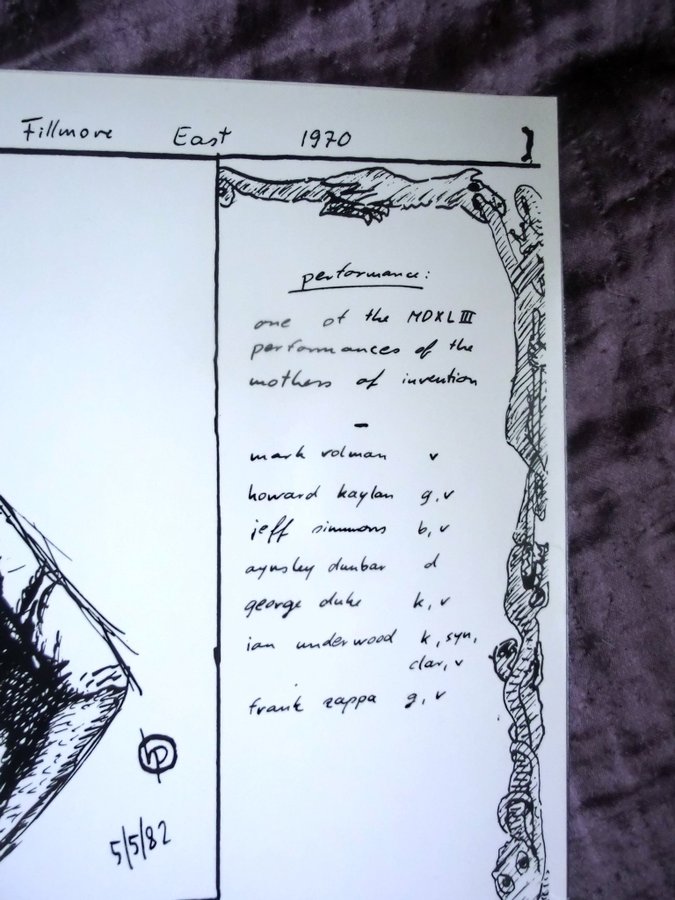 Fillmore East 1970
performance:
one of the MDXLIII
performances of the
mothers of invention
-
mark volman v
howard kaylan g, v
jeff simmons b, v
aynsley dunbar d
george duke k, v
ian underwood k, syn,
clar, v
frank zappa g, v
5/5/82